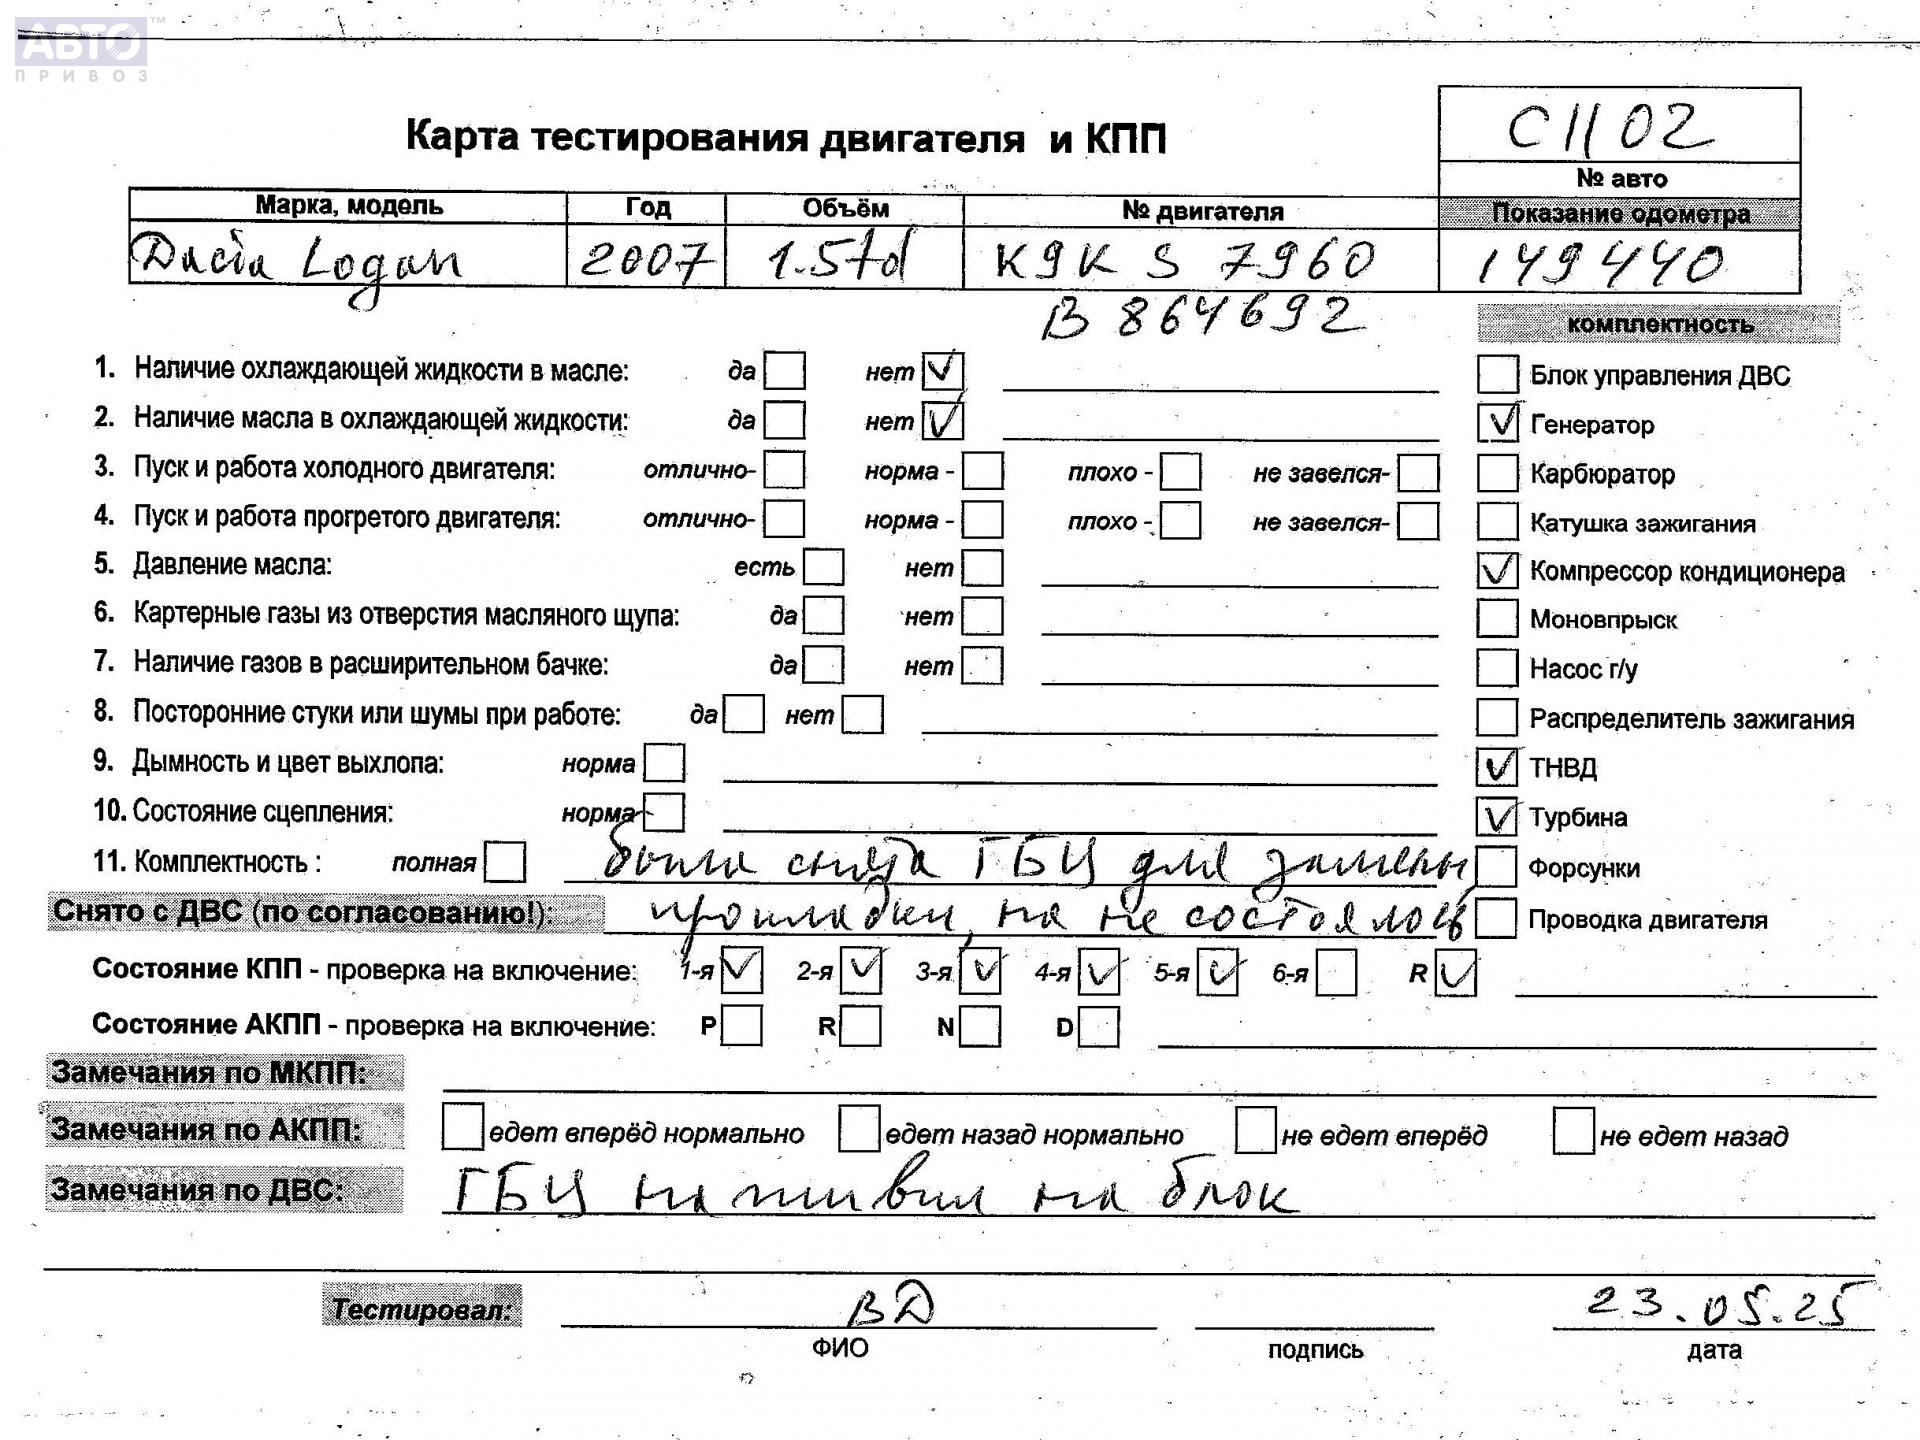 АВТО™
ПРИВОЗ
С1102
Карта тестирования двигателя и КПП
№ авто
Марка, модель Год Объём № двигателя Показание одометра
Dacia Logan 2007 1.5td K9K S 7960 149440
B 864692
комплектность
1. Наличие охлаждающей жидкости в масле: да нет ✓ Блок управления ДВС
2. Наличие масла в охлаждающей жидкости: да нет ✓ ✓ Генератор
3. Пуск и работа холодного двигателя: отлично- норма - плохо - не завелся- Карбюратор
4. Пуск и работа прогретого двигателя: отлично- норма - плохо - не завелся- Катушка зажигания
5. Давление масла: есть нет ✓ Компрессор кондиционера
6. Картерные газы из отверстия масляного щупа: да нет Моновпрыск
7. Наличие газов в расширительном бачке: да нет Насос г/у
8. Посторонние стуки или шумы при работе: да нет Распределитель зажигания
9. Дымность и цвет выхлопа: норма ✓ ТНВД
10. Состояние сцепления: норма ✓ Турбина
11. Комплектность : полная была снята ГБЦ для замены Форсунки
Снято с ДВС (по согласованию!): прокладки, на не состоялось Проводка двигателя
Состояние КПП - проверка на включение: 1-я ✓ 2-я ✓ 3-я ✓ 4-я ✓ 5-я ✓ 6-я R ✓
Состояние АКПП - проверка на включение: P R N D
Замечания по МКПП:
Замечания по АКПП: едет вперёд нормально едет назад нормально не едет вперёд не едет назад
Замечания по ДВС: ГБЦ наживил на блок
Тестировал: ВД 23.05.25
ФИО подпись дата